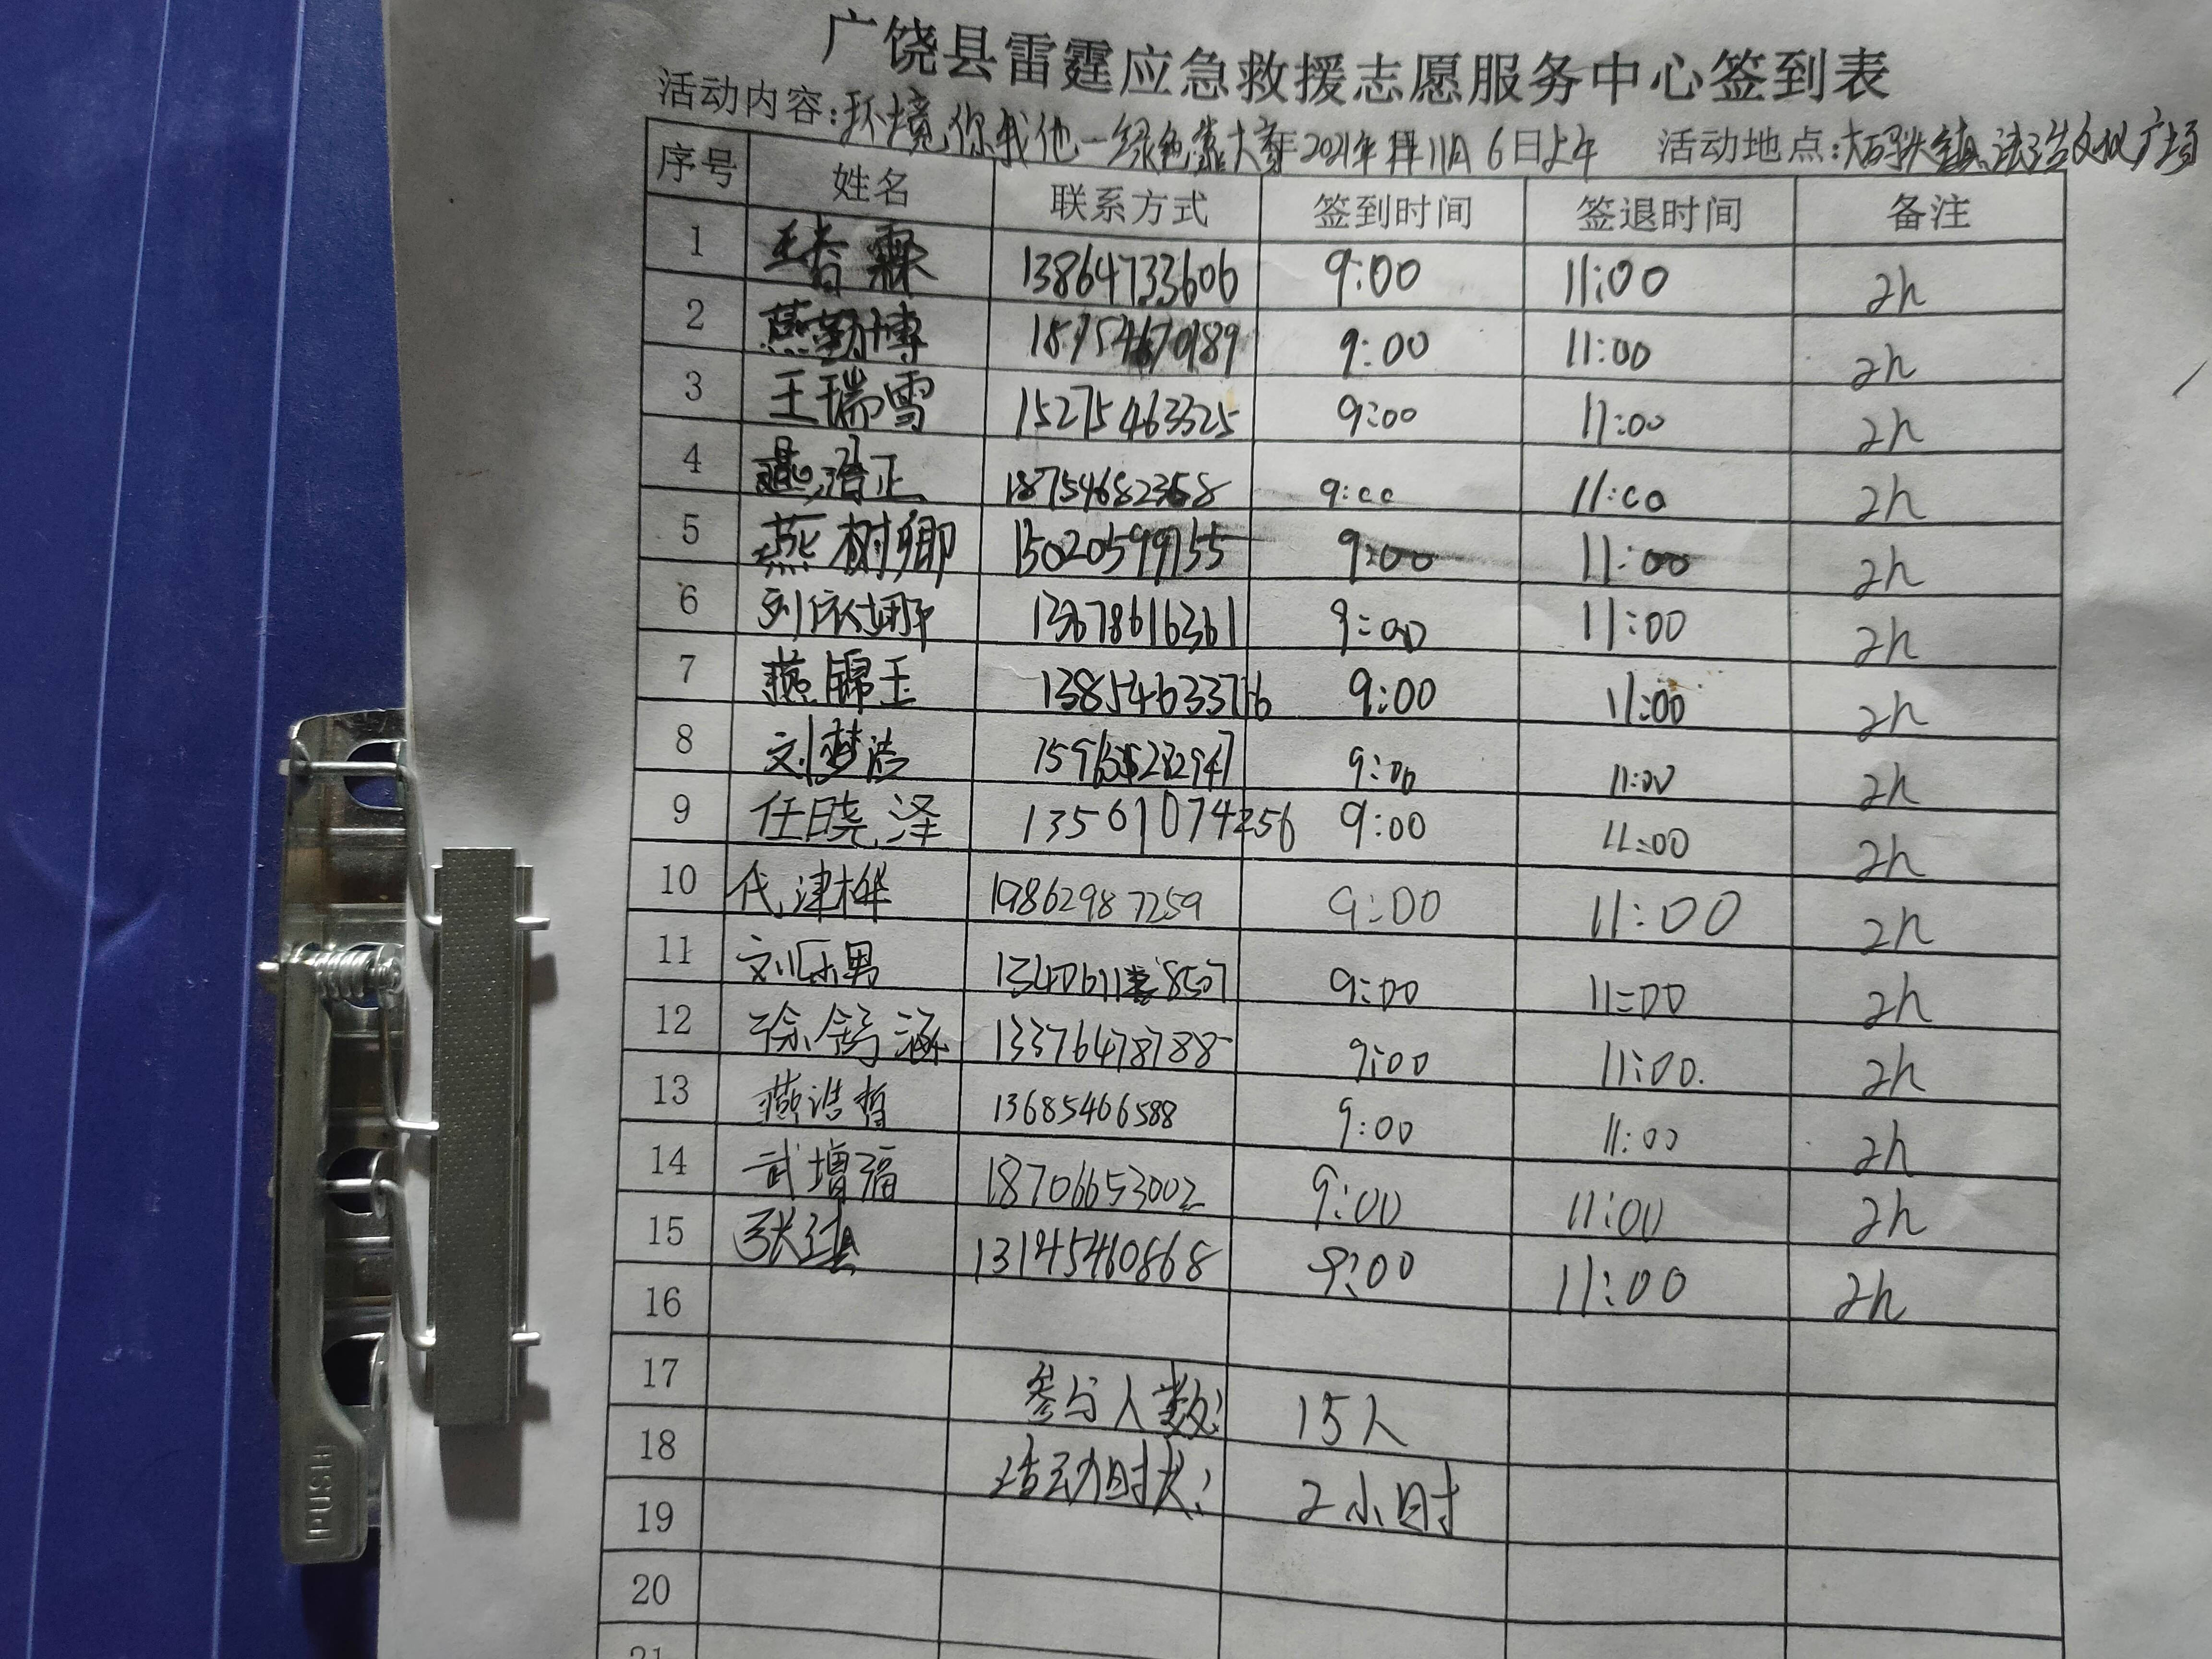 广饶县雷霆应急救援志愿服务中心签到表
活动内容:环境,你我他一绿色靠大家 2021年 11月6日上午 活动地点:大码头镇法治文化广场
序号 姓名 联系方式 签到时间 签退时间 备注
1 王春霖 13864733606 9:00 11:00 2h
2 燕勤博 9:00 11:00 2h
3 王瑞雪 15275463325 9:00 11:00 2h
4 正 9:00 11:00 2h
5 燕树卿 15020599155 9:00 11:00 2h
6 刘依娜 13678616361 9:00 11:00 2h
7 燕锦玉 13854633776 9:00 11:00 2h
8 刘梦洁 9:00 11:00 2h
9 任晓泽 13561074256 9:00 11:00 2h
10 代津桦 19862987259 9:00 11:00 2h
11 刘乐男 9:00 11:00 2h
12 徐 涵 13376478788 9:00 11:00. 2h
13 燕浩哲 13685466588 9:00 11:00 2h
14 武增福 18706653002 9:00 11:00 2h
15 张 13145460868 9:00 11:00 2h
16
17 参与人数: 15人
18 活动时长: 2小时
19
20
21
PUSH